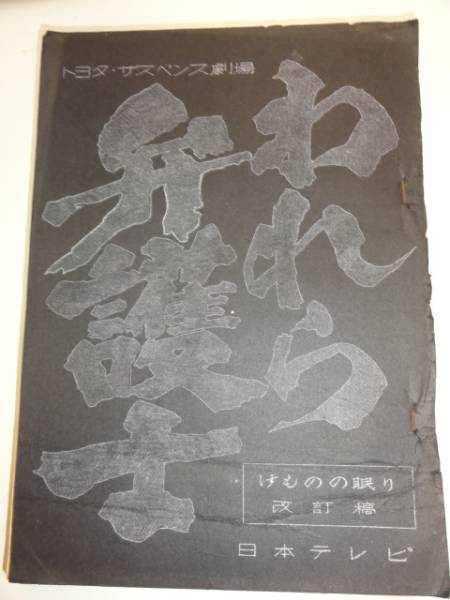 トヨタ・サスペンス劇場
われら
弁護士
けものの眠り
改訂稿
日本テレビ